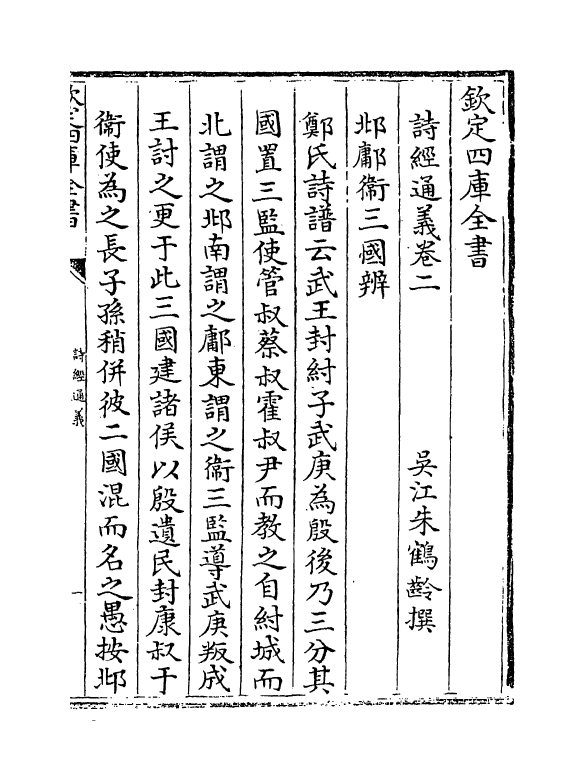 欽定四庫全書
詩經通義卷二
吳江朱鶴齡撰
邶鄘衛三國辨
鄭氏詩譜云武王封紂子武庚為殷後乃三分其
國置三監使管叔蔡叔霍叔尹而教之自紂城而
北謂之邶南謂之鄘東謂之衛三監導武庚叛成
王討之更于此三國建諸侯以殷遺民封康叔于
衛使為之長子孫稍併彼二國混而名之愚按邶
欽定四庫全書
詩經通義
一